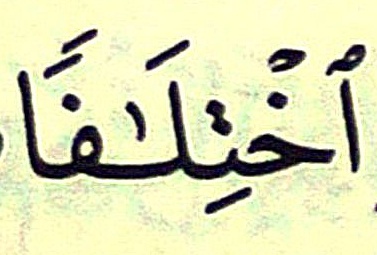 ٱخْتِلَـٰفًا